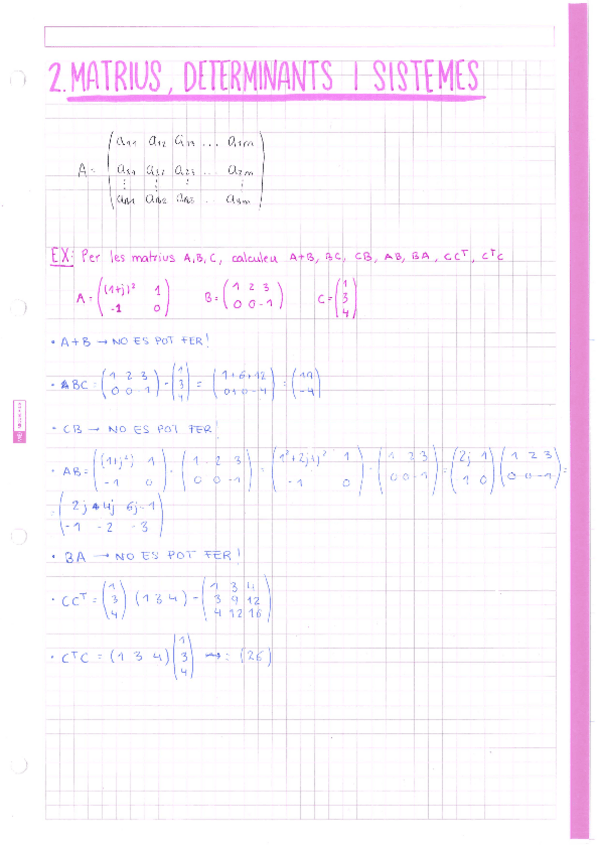 2. MATRIUS, DETERMINANTS I SISTEMES
A = (a11 a12 a13 ... a1m
a21 a22 a23 ... a2m
⋮ ⋮ ⋮ ⋮
an1 an2 an3 ... anm)
EX: Per les matrius A,B,C, calculeu A+B, BC, CB, AB, BA, CCᵀ, CᵀC
A = ((1+j)² 1 / -1 0) B = (1 2 3 / 0 0 -1) C = (1 / 3 / 4)
• A+B → NO ES POT FER!
• BC = (1 2 3 / 0 0 -1) · (1 / 3 / 4) = (1+6+12 / 0+0-4) = (19 / -4)
• CB → NO ES POT FER!
• AB = ((1+j²) 1 / -1 0) · (1 2 3 / 0 0 -1) = (1²+2j+j² 1 / -1 0) · (1 2 3 / 0 0 -1) = (2j 1 / 1 0) (1 2 3 / 0 0 -1) =
= (2j 4j 6j-1 / -1 -2 -3)
• BA → NO ES POT FER!
• CCᵀ = (1 / 3 / 4) (1 3 4) = (1 3 4 / 3 9 12 / 4 12 16)
• CᵀC = (1 3 4) (1 / 3 / 4) → : (26)